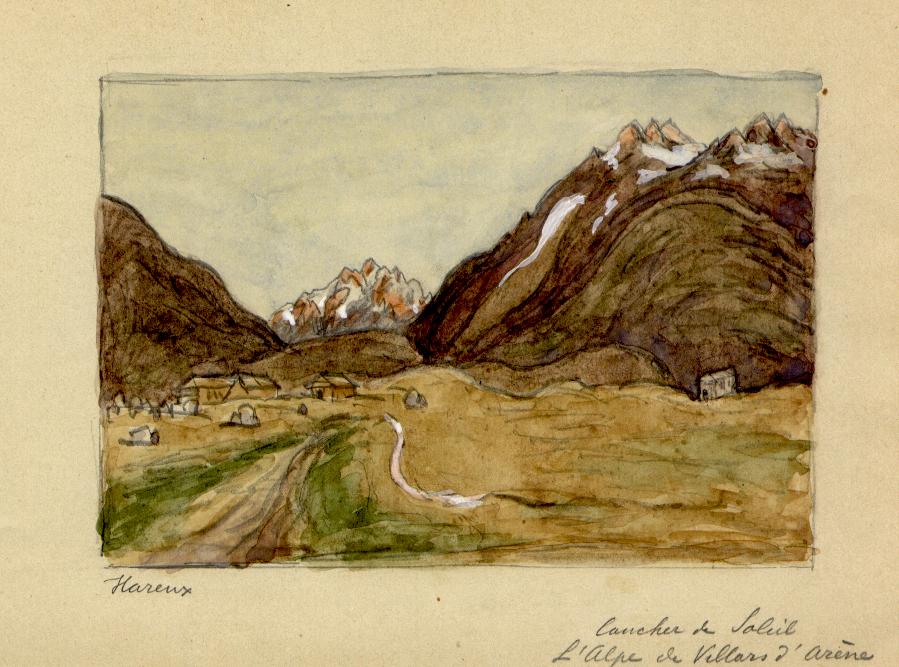 Hareux
Coucher de Soleil
L'Alpe de Villars d'Arène